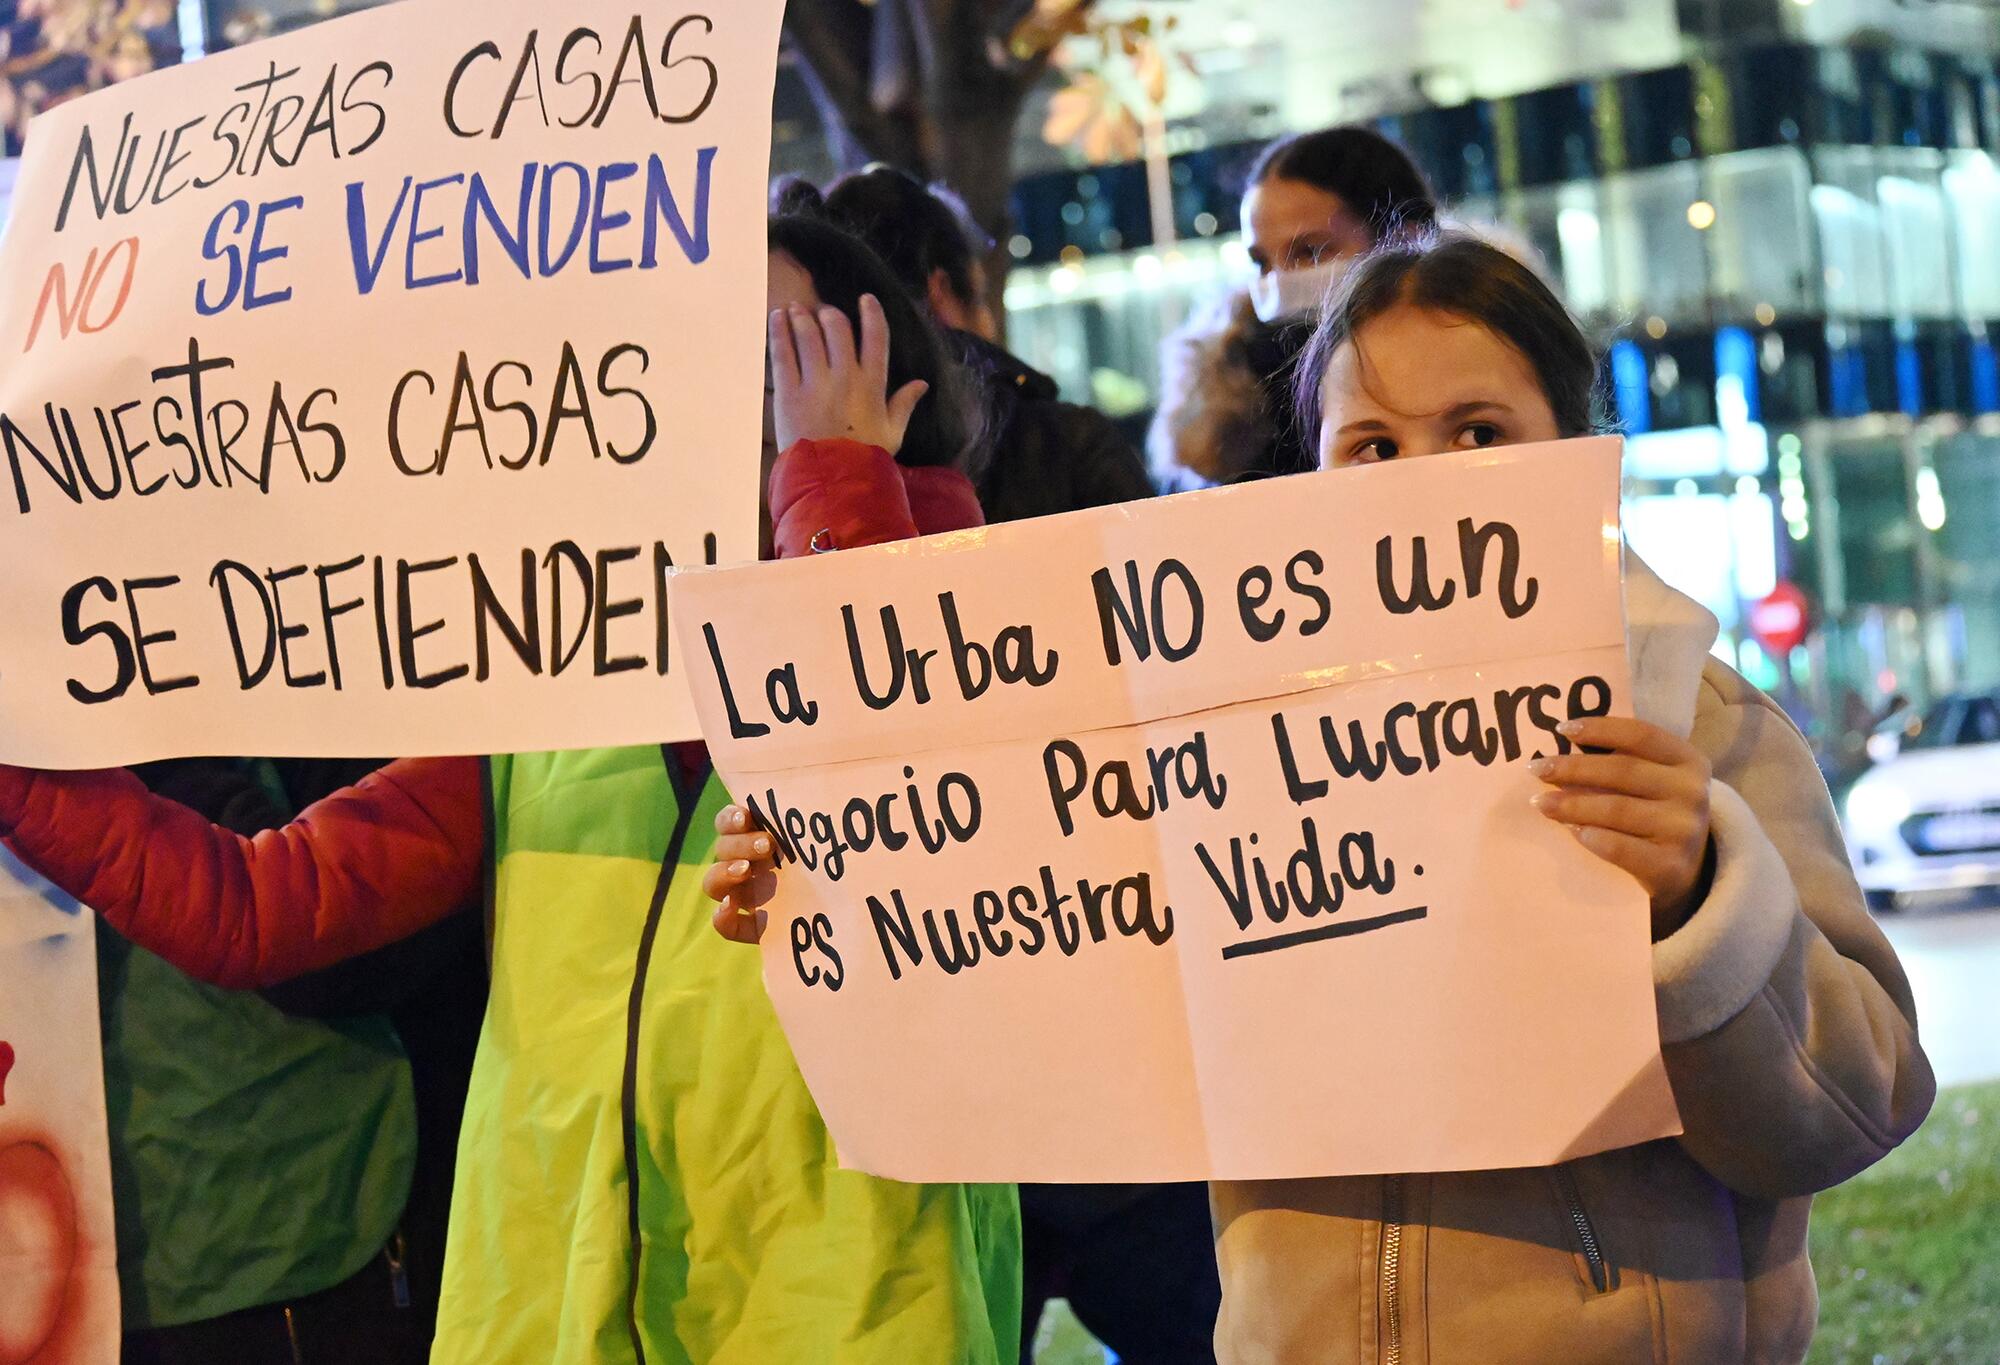 NUESTRAS CASAS
NO SE VENDEN
NUESTRAS CASAS
SE DEFIENDEN
La Urba NO es un
Negocio Para Lucrarse
es Nuestra Vida.